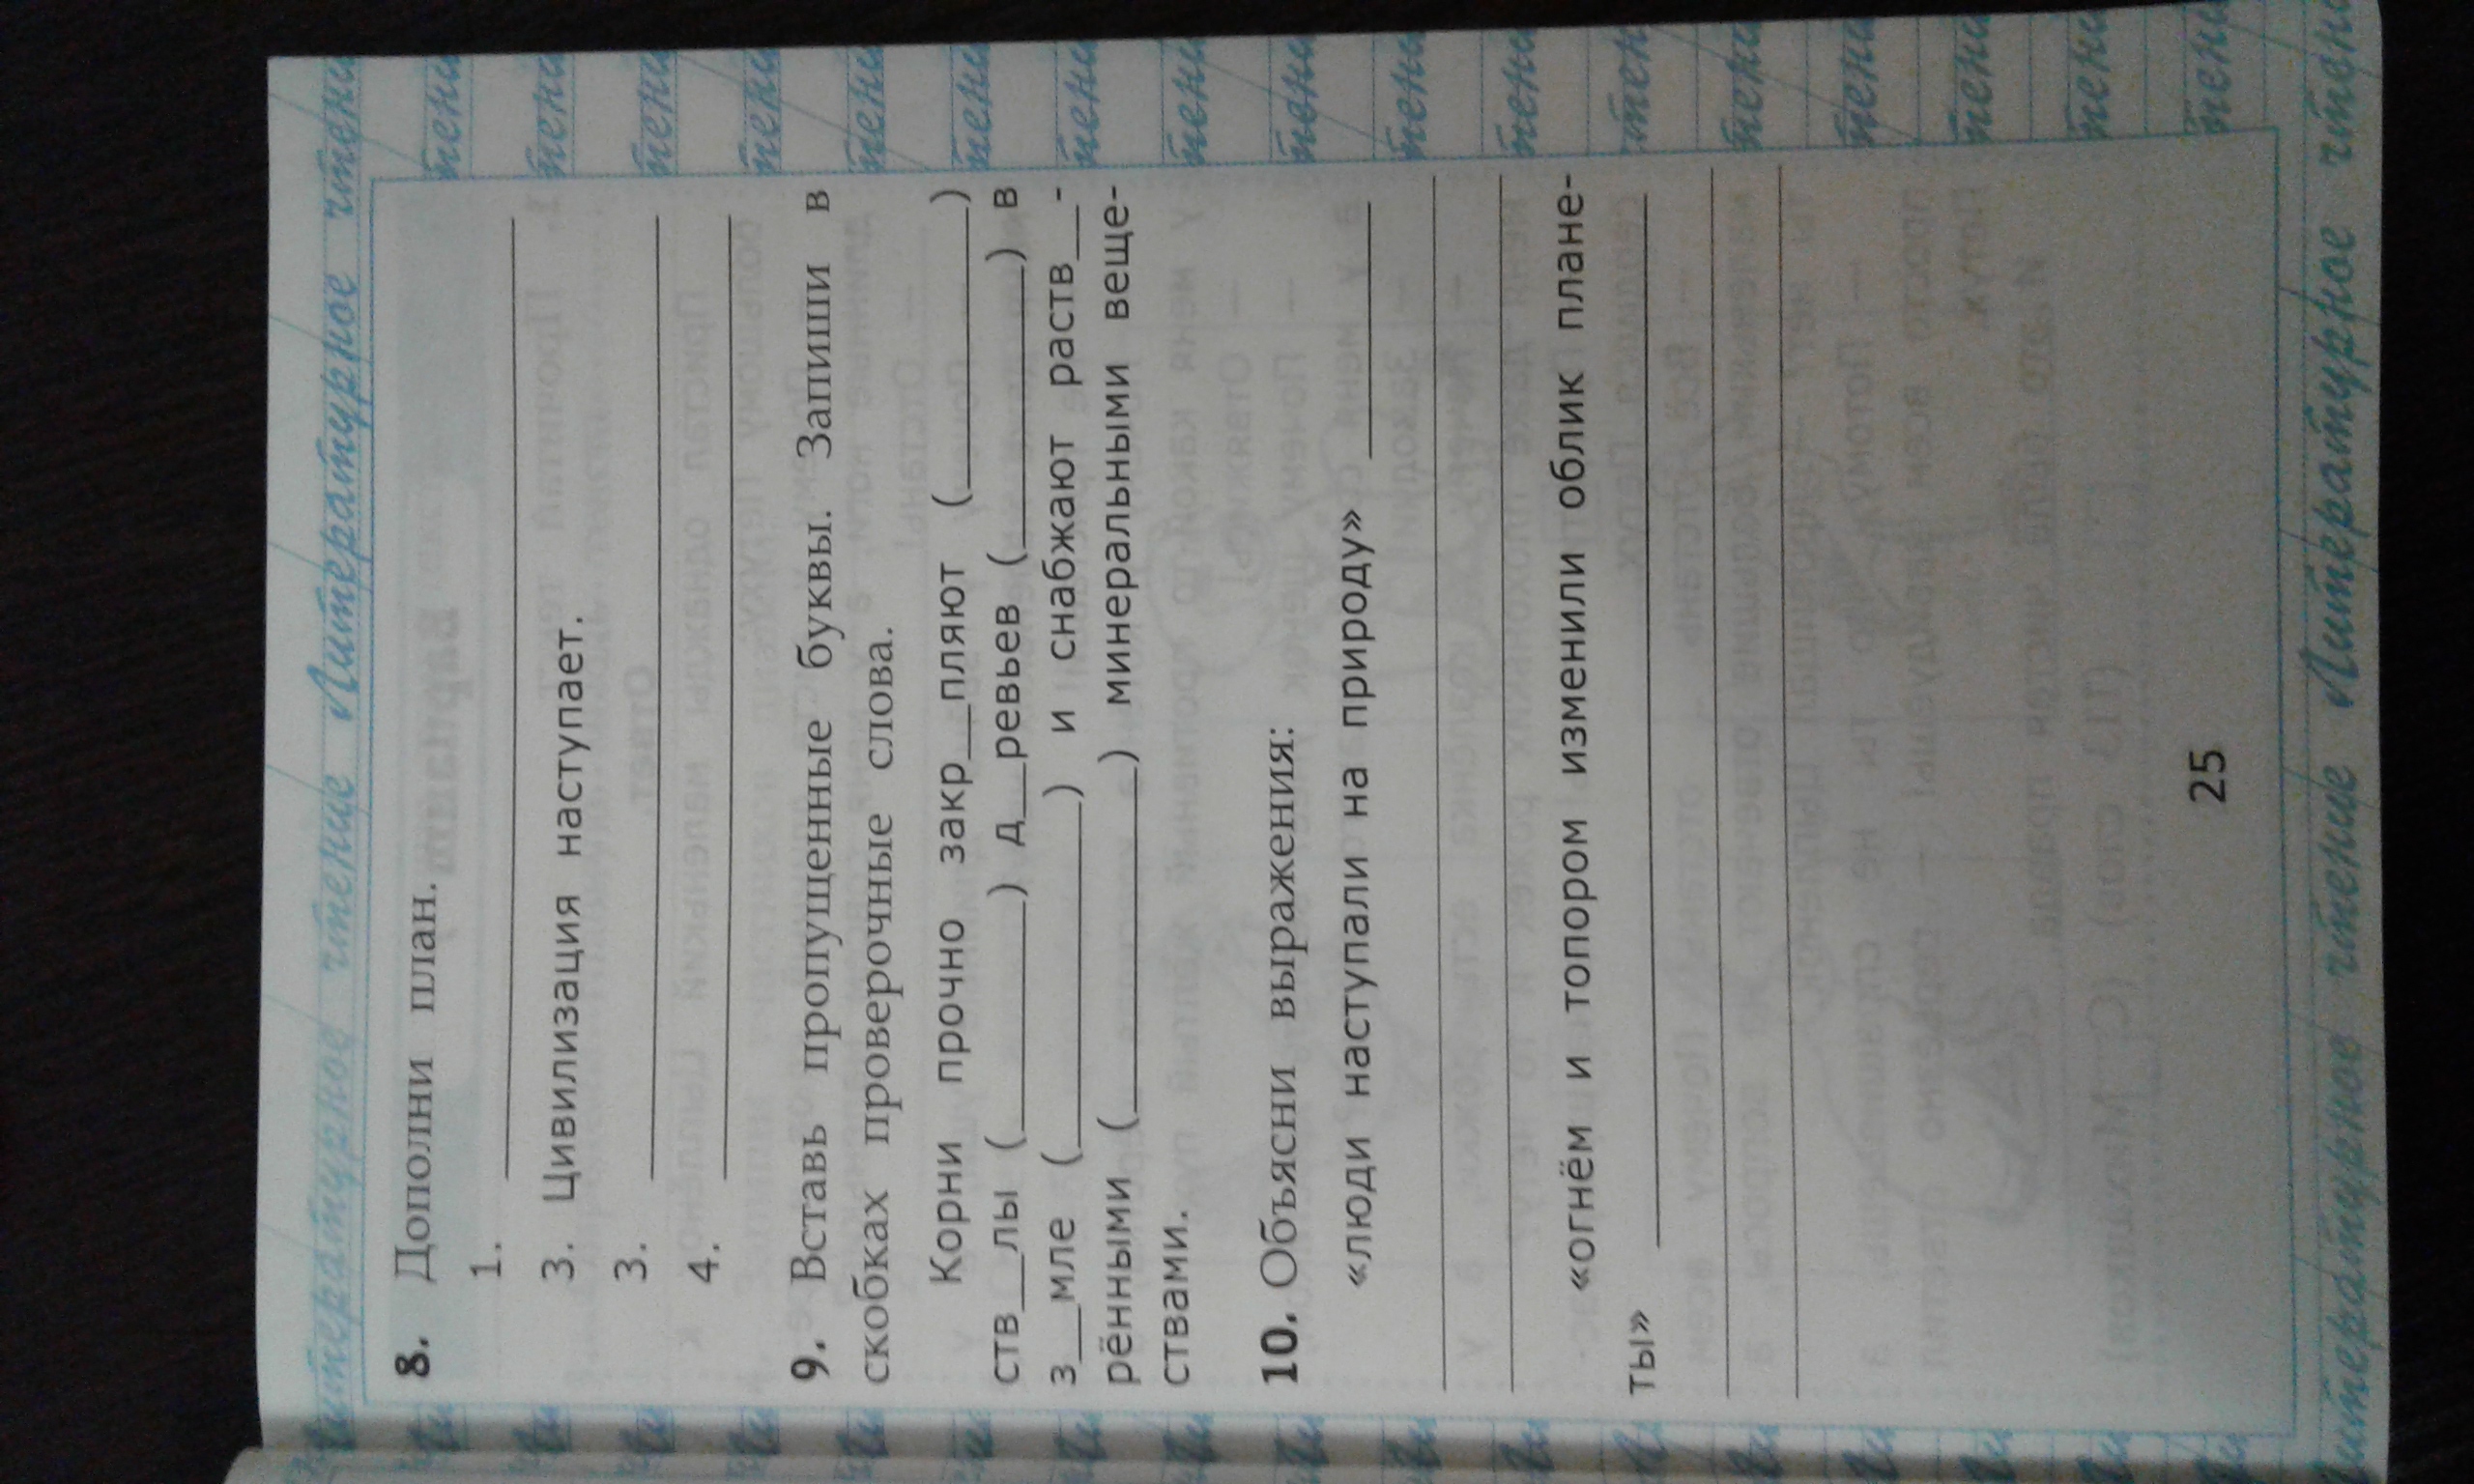 Литературное чтение Литературное чтение
8. Дополни план.
1. ____________
3. Цивилизация наступает.
3. ____________
4. ____________
9. Вставь пропущенные буквы. Запиши в
скобках проверочные слова.
Корни прочно закр__пляют (________)
ств__лы (________) д__ревьев (________) в
з__мле (________) и снабжают раств__-
рёнными (________) минеральными веще-
ствами.
10. Объясни выражения:
«люди наступали на природу» ________
«огнём и топором изменили облик плане-
ты» ____________
25
Литературное чтение Литературное чтение